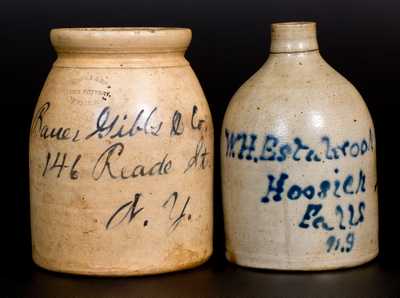 Bauer Gibbs & Co.
146 Reade St.
N. Y.
W.H. Estabrook
Hoosick
Falls
N.Y